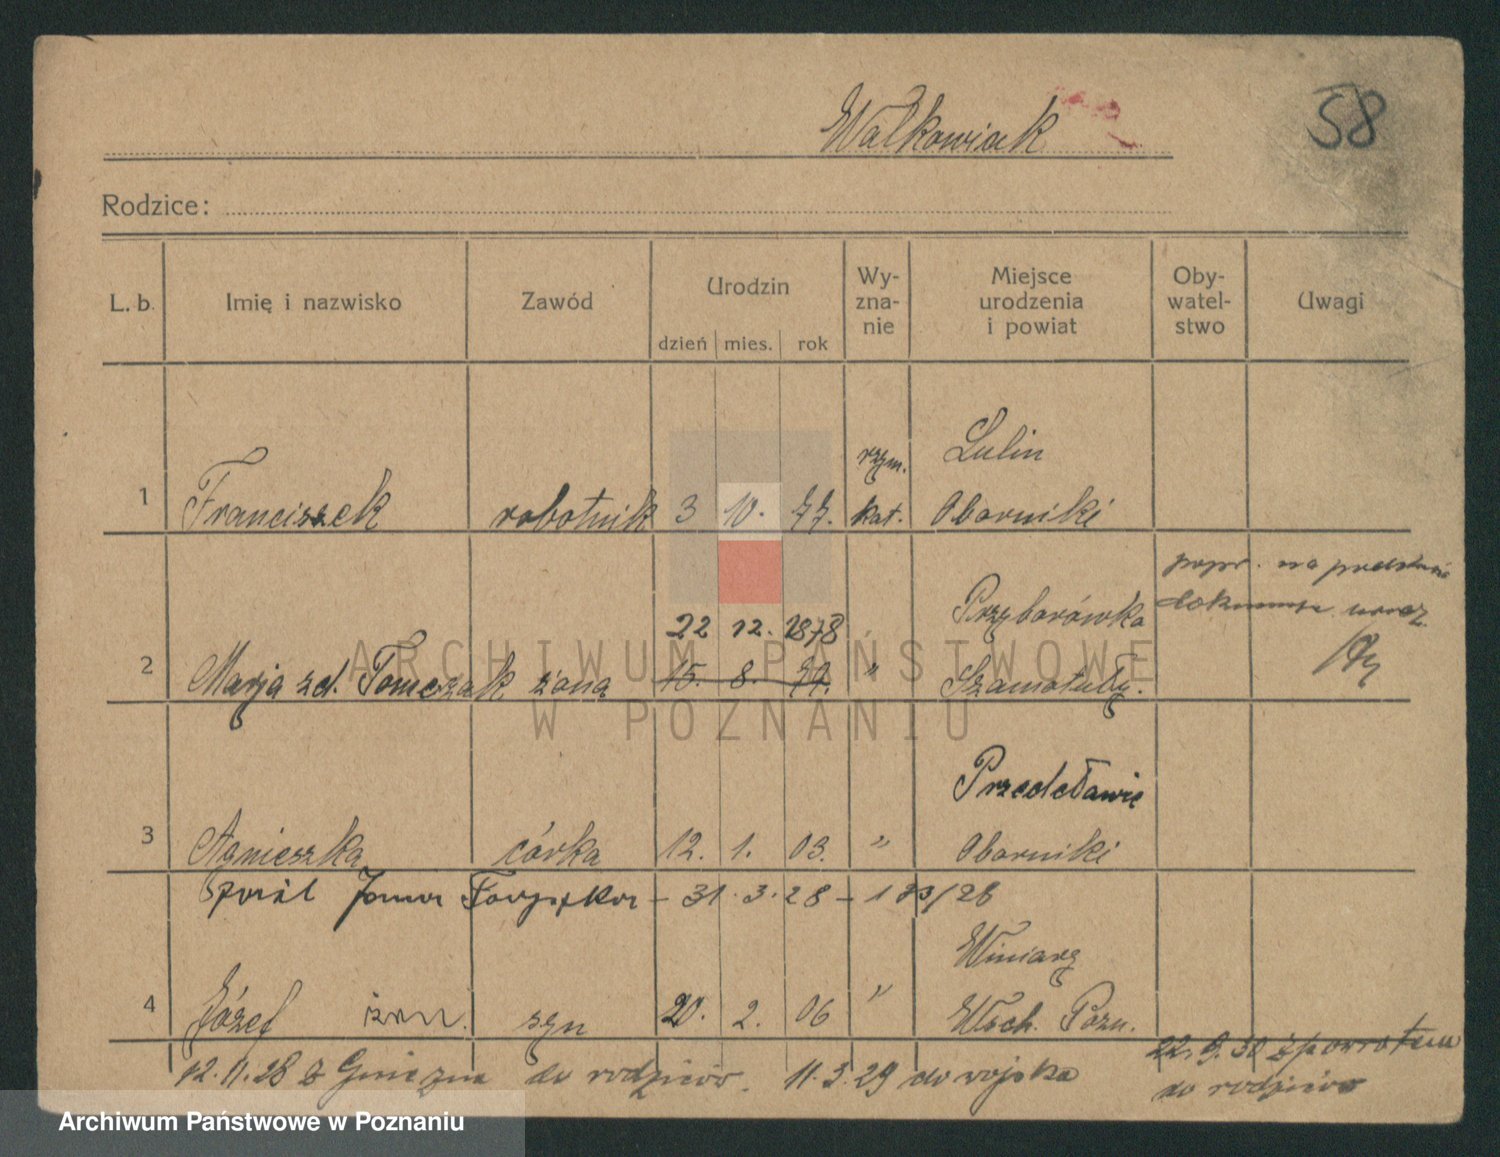 Walkowiak
58
Rodzice:
L. b. Imię i nazwisko Zawód Urodzin dzień mies. rok Wy-zna-nie Miejsce urodzenia i powiat Oby-watel-stwo Uwagi
rzym. Lulin
1 Franciszek robotnik 3 10. 77. kat. Oborniki
popr. na podstawie
22 12. 1878 Przyborówka
2 Marja zd. Tomczak żona 15. 8. 77. " Szamotuły.
ARCHIWUM PAŃSTWOWE
W POZNANIU
Przecław
3 Agnieszka córka 12. 1. 03. " Oborniki
31. 3. 28 –
Winiary
4 Józef syn 20. 2. 06 " Wsch. Pozn.
12. 11. 28 z Gniezna do rodziców. 11. 3. 29 do wojska 22. 9. 30 z powrotem
do rodziców
Archiwum Państwowe w Poznaniu